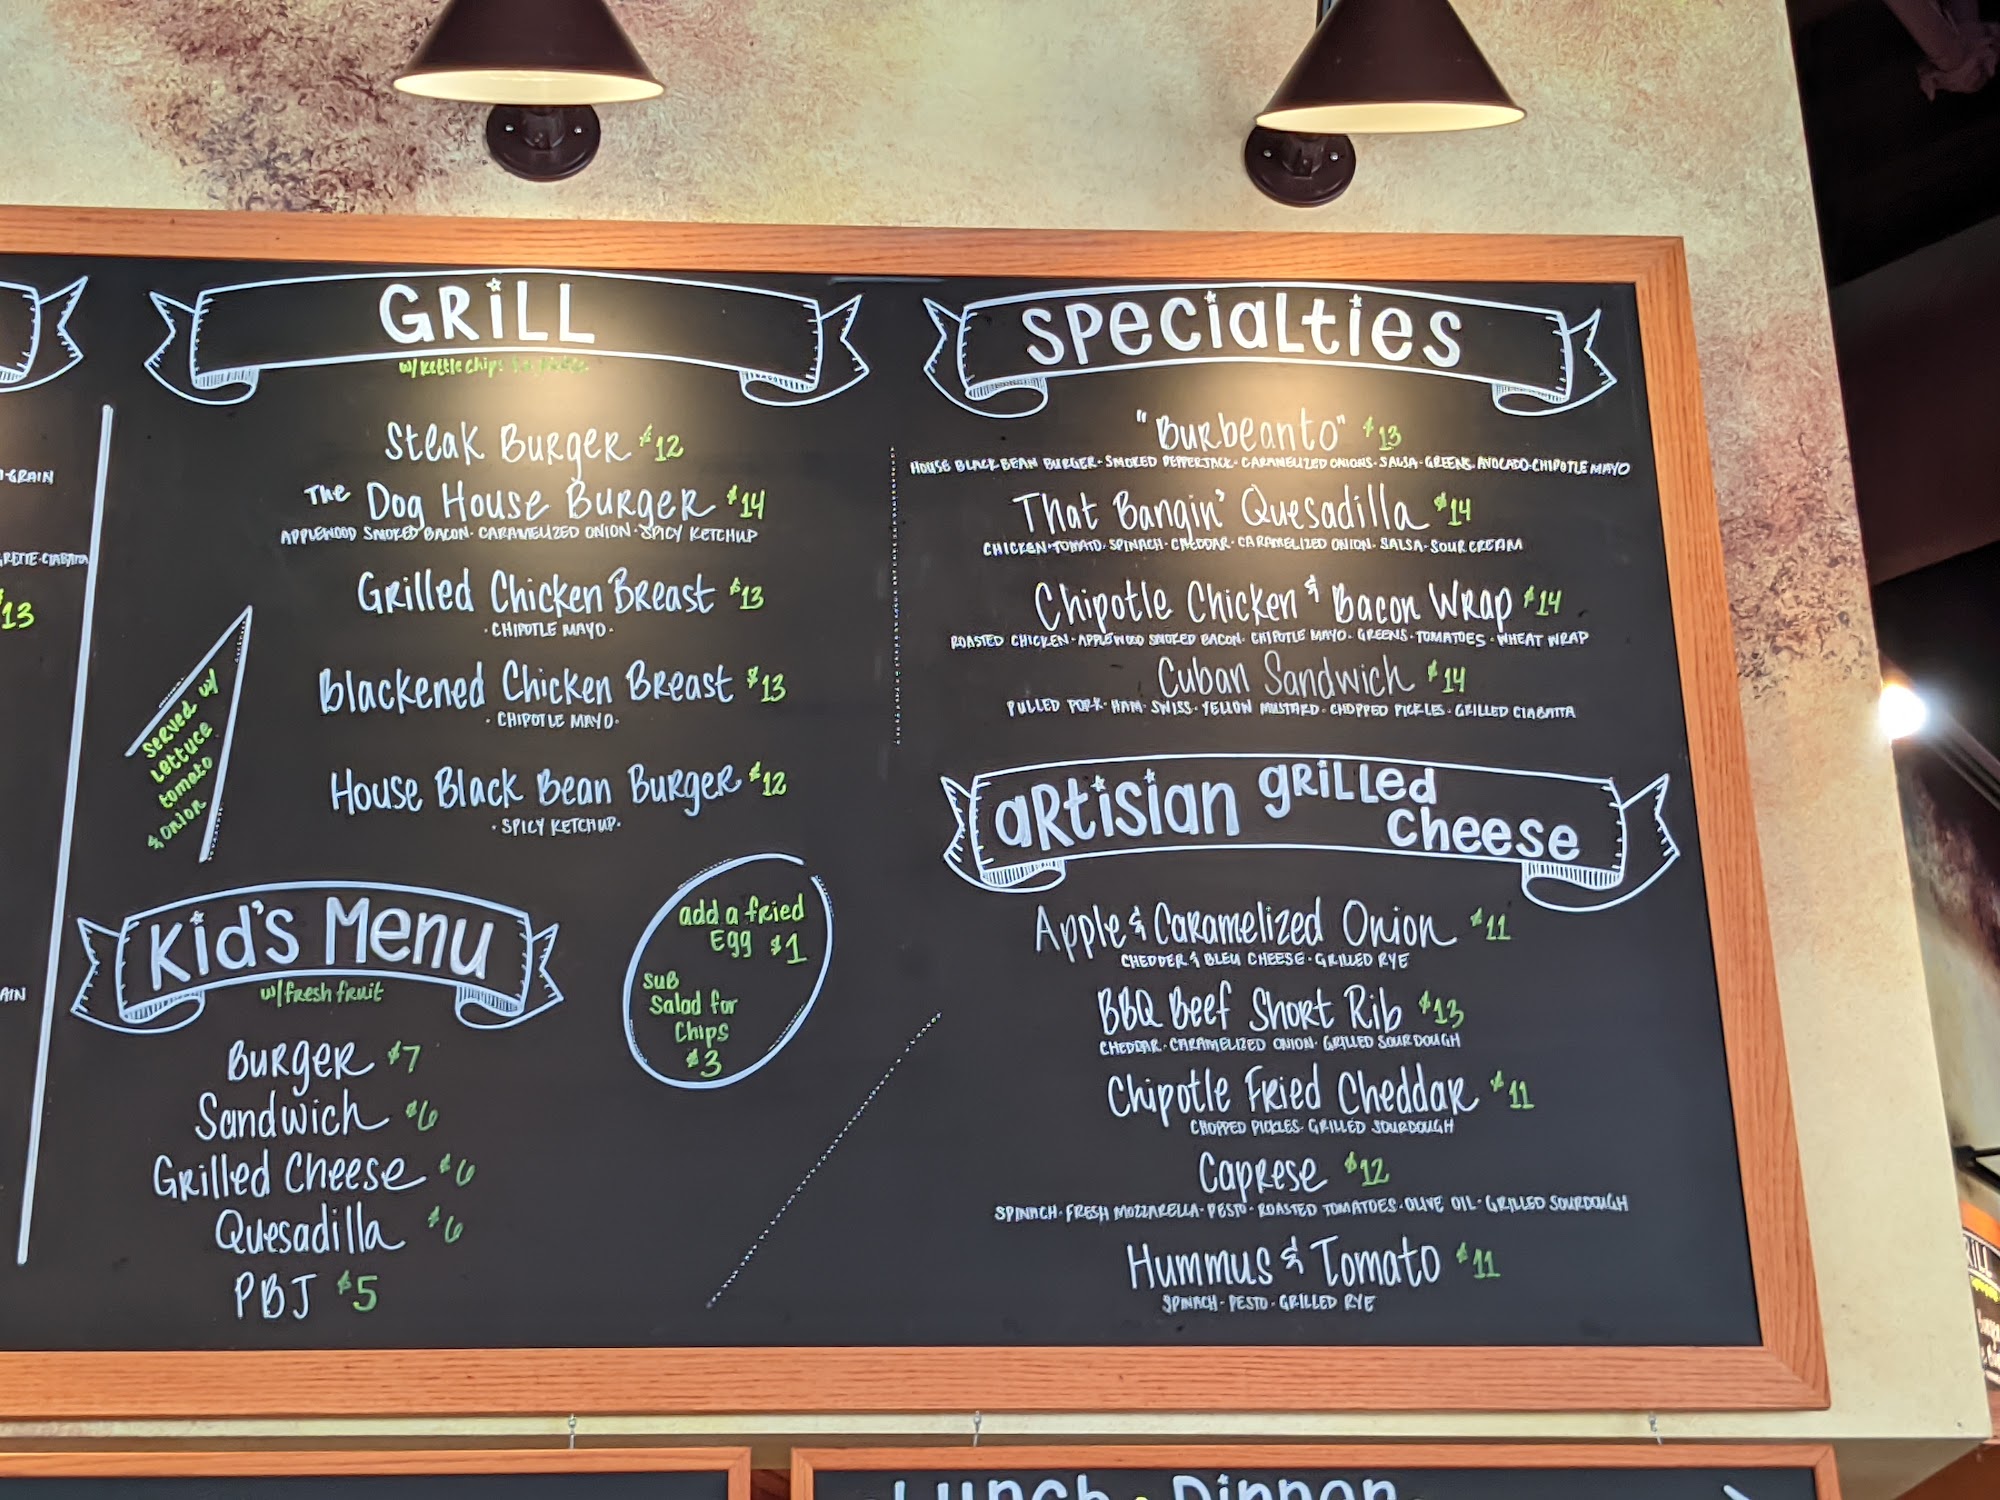 I-GRAIN
RETTE·CIABATTA
$13
AIN
GRILL
w/ kettle chips
Steak Burger $12
The Dog House Burger $14
APPLEWOOD SMOKED BACON· CARAMELIZED ONION· SPICY KETCHUP
Grilled Chicken Breast $13
·CHIPOTLE MAYO·
Blackened Chicken Breast $13
·CHIPOTLE MAYO·
House Black Bean Burger $12
·SPICY KETCHUP·
served w/
lettuce
tomato
& onion
Kid's Menu
w/ fresh fruit
Burger $7
Sandwich $6
Grilled Cheese $6
Quesadilla $6
PBJ $5
add a fried
Egg $1
sub
salad for
chips
$3
Specialties
"Burbeanto" $13
HOUSE BLACK BEAN BURGER· SMOKED PEPPERJACK· CARAMELIZED ONIONS· SALSA· GREENS· AVOCADO·CHIPOTLE MAYO
That Bangin' Quesadilla $14
CHICKEN·TOMATO· SPINACH· CHEDDAR· CARAMELIZED ONION· SALSA· SOUR CREAM
Chipotle Chicken & Bacon Wrap $14
ROASTED CHICKEN· APPLEWOOD SMOKED BACON· CHIPOTLE MAYO· GREENS· TOMATOES· WHEAT WRAP
Cuban Sandwich $14
PULLED PORK· HAM· SWISS· YELLOW MUSTARD· CHOPPED PICKLES· GRILLED CIABATTA
artisian grilled
cheese
Apple & Caramelized Onion $11
CHEDDER & BLEU CHEESE· GRILLED RYE
BBQ Beef Short Rib $13
CHEDDAR· CARAMELIZED ONION· GRILLED SOURDOUGH
Chipotle Fried Cheddar $11
CHOPPED PICKLES· GRILLED SOURDOUGH
Caprese $12
SPINACH· FRESH MOZZARELLA· PESTO· ROASTED TOMATOES· OLIVE OIL· GRILLED SOURDOUGH
Hummus & Tomato $11
SPINACH· PESTO· GRILLED RYE
Lunch · Dinner